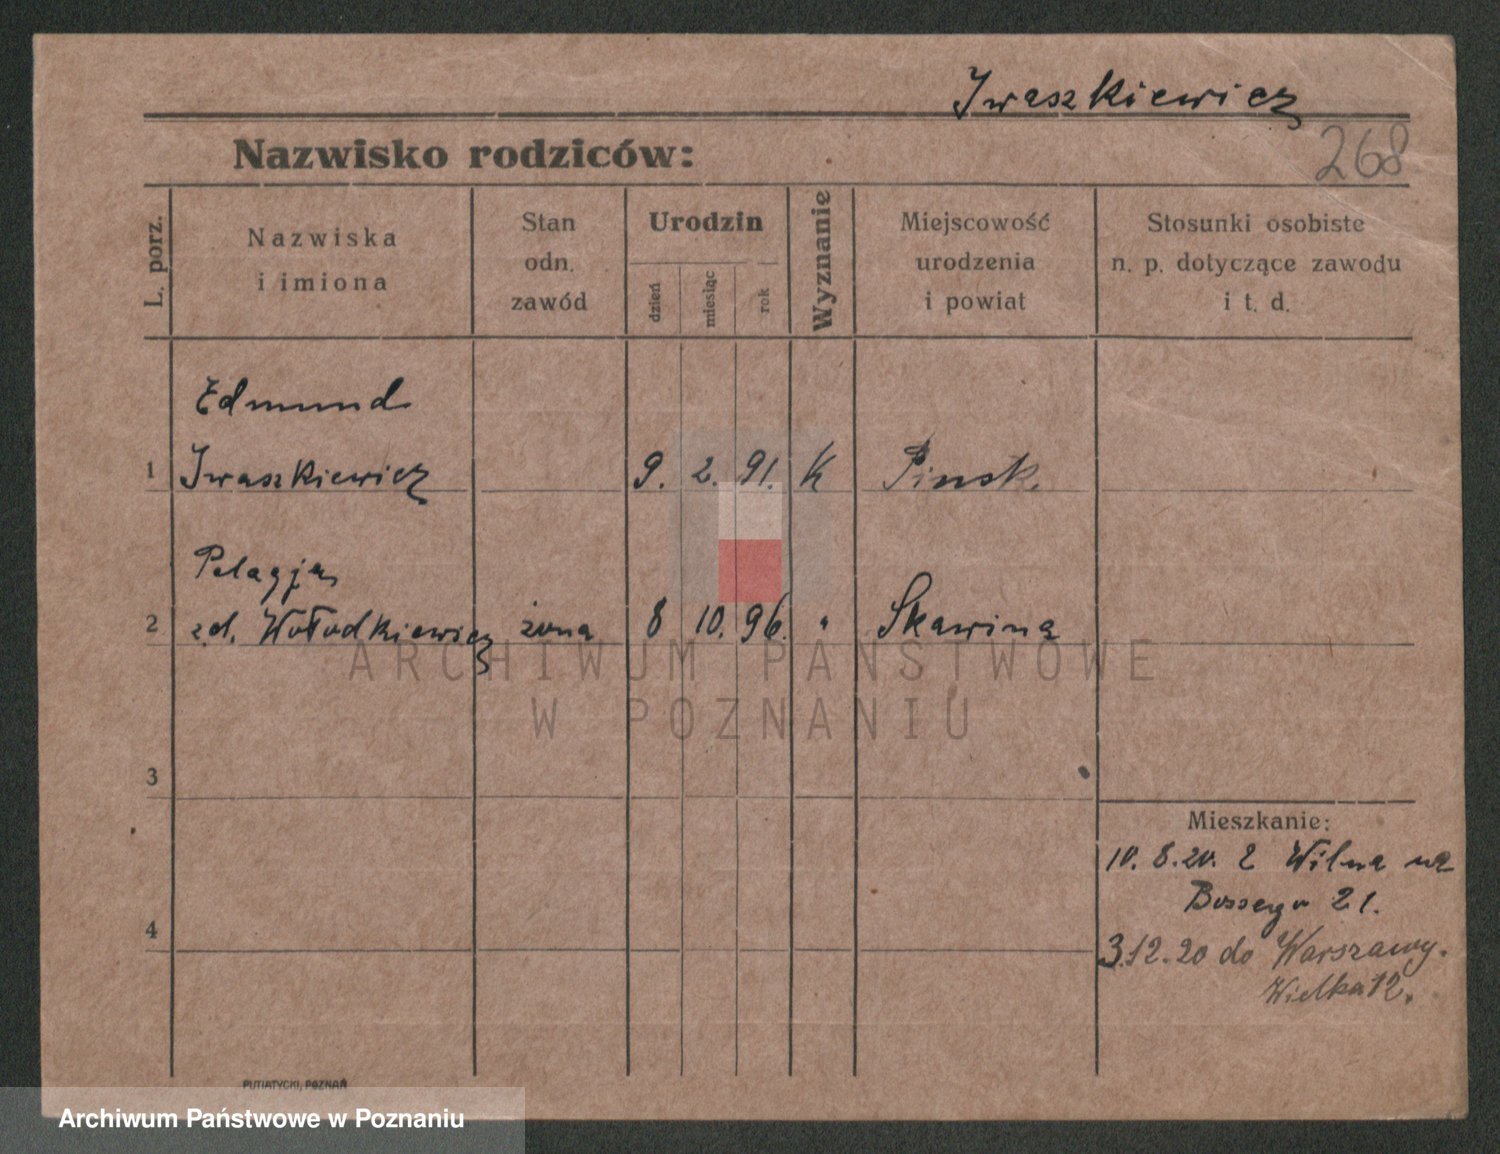 Iwaszkiewicz
Nazwisko rodziców:
268
L. porz.
Nazwiska
i imiona
Stan
odn.
zawód
Urodzin
dzień
miesiąc
rok
Wyznanie
Miejscowość
urodzenia
i powiat
Stosunki osobiste
n. p. dotyczące zawodu
i t. d.
Edmund
1 Iwaszkiewicz 9. 2. 91. K Pinsk.
Pelagja
2 zd. Wołodkiewicz żona 8 10. 96. " Skawina
ARCHIWUM PAŃSTWOWE
W POZNANIU
3
Mieszkanie:
10. 8. 20. z Wilna na
21.
4
3.12.20 do Warszawy.
Wielka 12.
PUTIATYCKI, POZNAŃ
Archiwum Państwowe w Poznaniu